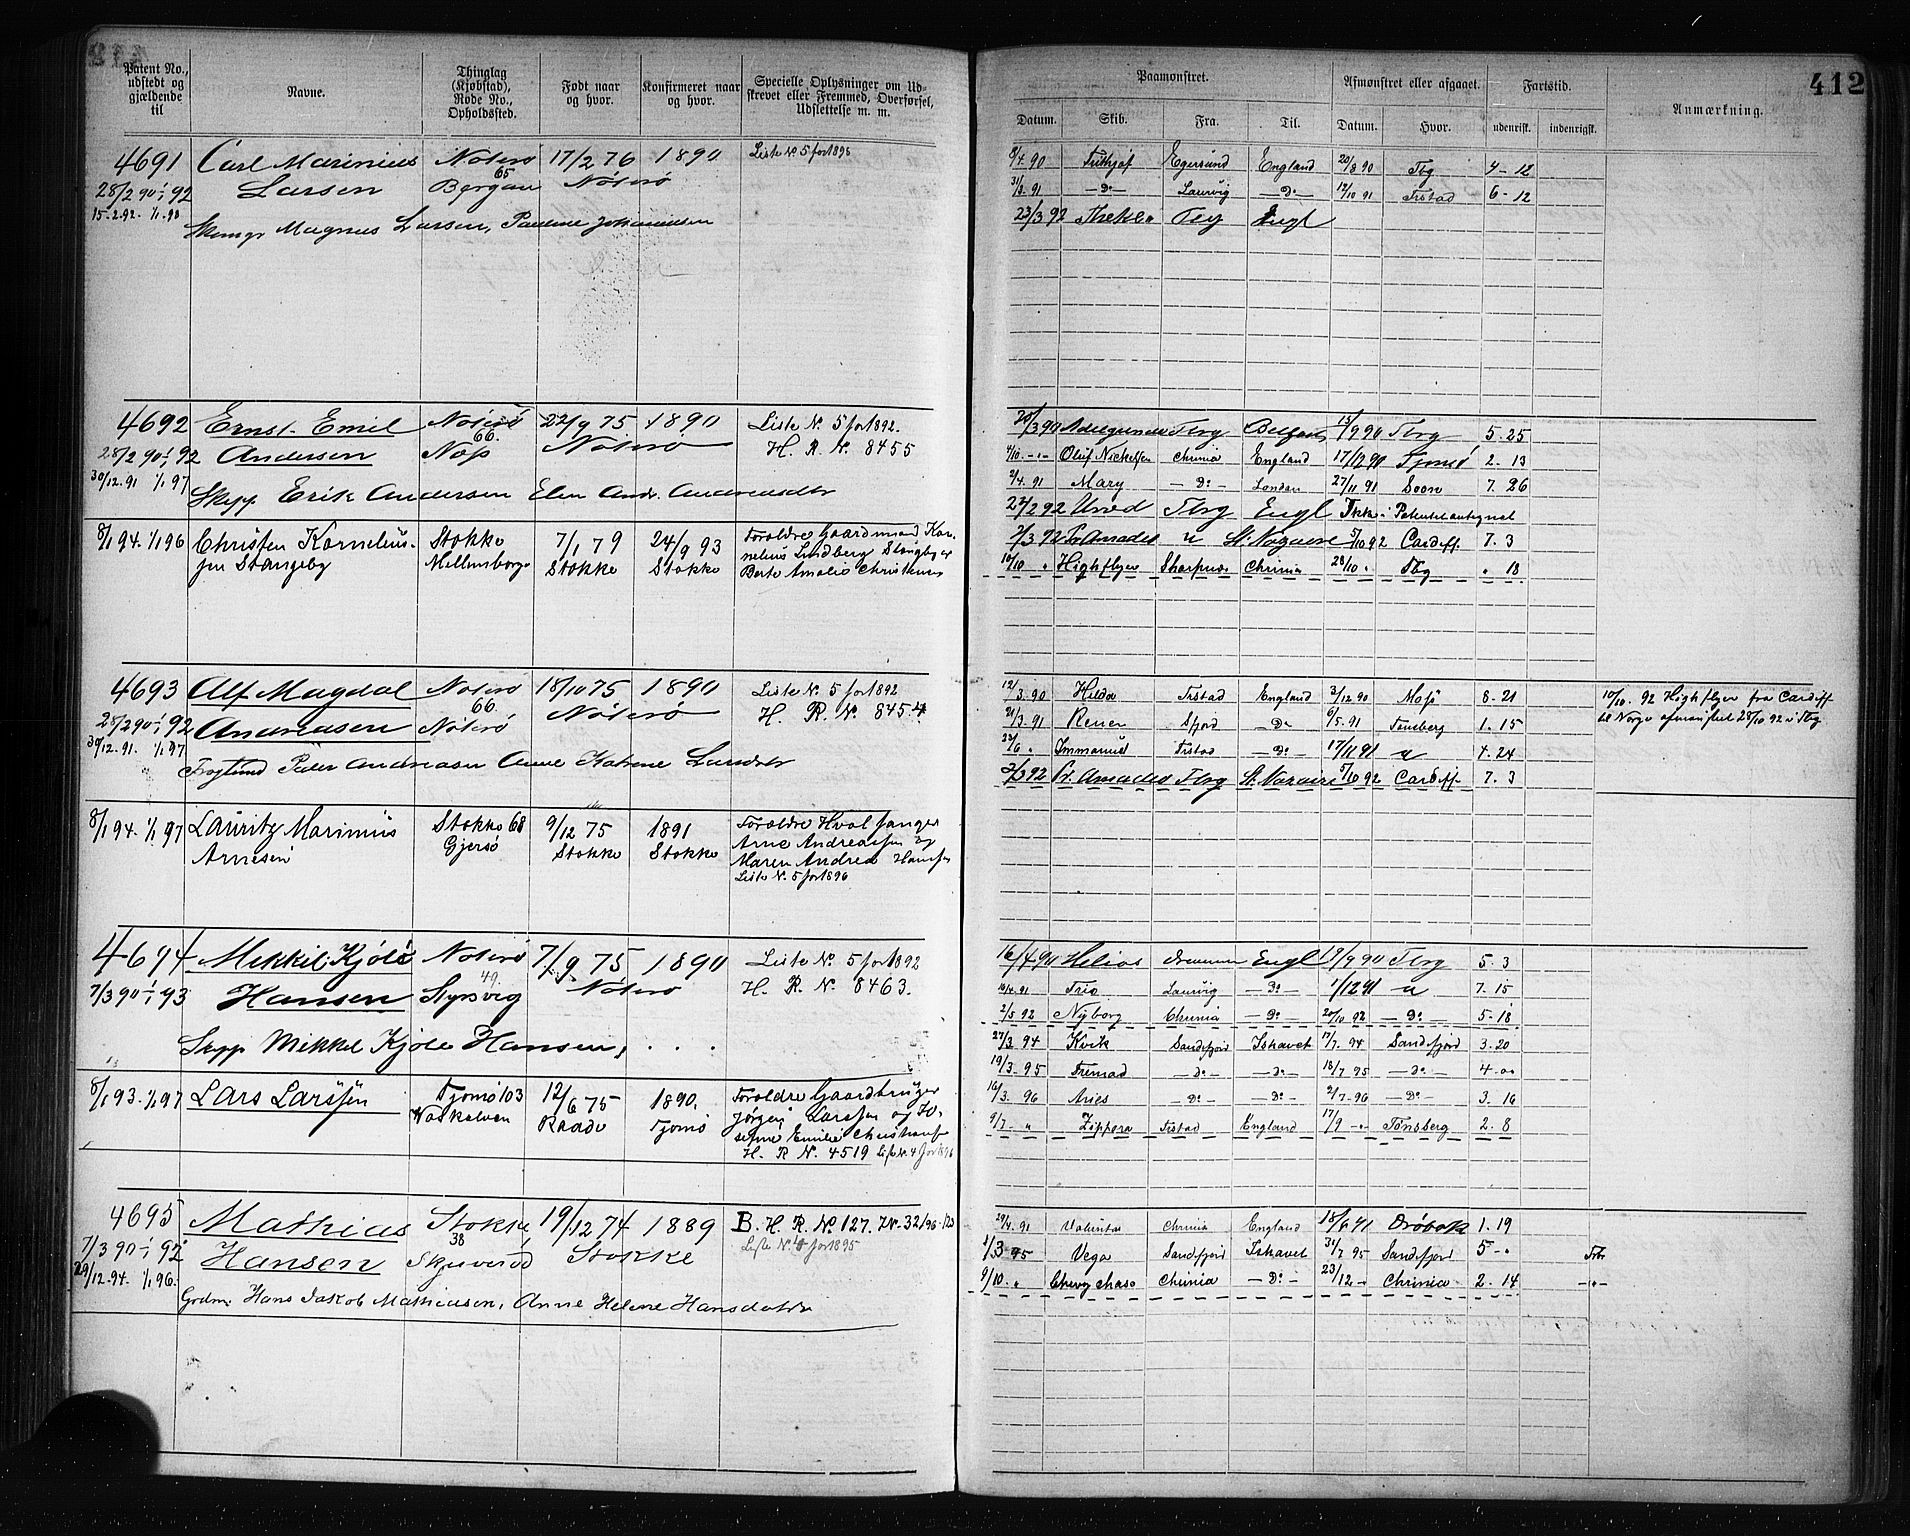 412
Patent No., udstedt og gjældende til
Navne.
Thinglag (Kjøbstad), Rode No., Opholdssted.
Født naar og hvor.
Konfirmeret naar og hvor.
Specielle Oplysninger om Udskrevet eller Fremmed, Overførsel, Udslettelse m. m.
Paamønstret.
Afmønstret eller afgaaet.
Fartstid.
Anmærkning.
Datum. Skib. Fra. Til. Datum. Hvor. udenrisk. indenrigsk.
4691 Carl Marinius Nøterø 17/2 76 1890 Liste No. 5 for 1898
28/2 90 1/1 92 Larsen 65 Bergan Nøterø
15-2-92. 1/1 98
Magnus Larsen, Pauline
8/4 90 Frithjof Egersund England 20/8 90 Tbg 4-12
31/3 91 -Do- Laurvig -Do- 12/10 91 Frstad 6-12
23/3 92 Thekla Tbg Engl
4692 Ernst Emil Nøterø 22/9 75 1890 Liste No. 5 for 1892.
28/2 90 1/1 92 Andersen 66. Nøterø H. R. No. 8455
30/12.91 1/1 97
Skpp. Erik Andersen Elen Andr. Andreasdtr
Tbrg 15/9 90 Tbrg 5-25
Oluf Nickelsen Chrinia England 17/12 90 2-13
2/4 91 Mary -Do- London 27/11 91 7.26
22/2 92 Tbrg Engl
3/3 92 Pr. Amadeo " St. Nazaire 5/10 92 Cardiff 7.3
10/10 " Highflyer Chrinia 28/10 " Tbg " 18
8/1 94. 1/1 96 Christen Kornelius- Stokke 7/1 79 24/9 93 Foreldre Gaardmand Kor-
sen Stangeby Mellemborge Stokke Stokke nelius Lindberg Stangeby og
Berte Amalie
4693 Alf Magdal Nøterø 18/10 75 1890 Liste No. 5 for 1892
28/2 90 1/1 92 Andreasen 66. Nøterø Nøterø H. R. No. 8454
30/12.91. 1/1 97
Peder Andreasen Anne Katrine
12/3. 90 Hilda Frstad England 3/12 90 Moss 8-21
21/3. 91 -Do- 6/5. 91 Tønsberg 1.15
22/6 " Immanuel Frstad -Do- 17/11 91 " 4.24
3/3 92 Pr. Amadeo Tbrg St. Nazaire 5/10 92 Cardiff 7.3
10/10. 92 Highflyer fra Cardiff
til Norge afmønstret 28/10 92 i Tbg
8/1 94. 1/1 97 Lauritz Marinius Stokke 68 9/12 75 1891 Foreldre Hvalfanger
Arnesen Gjersø Stokke Stokke Arne Andreassen og
Maren Andrea Hansen
Liste No. 5 for 1896
4694 Mikkel Kjøle Nøterø 7/9 75 1890 Liste No. 5 for 1892
7/3 90 1/1 93 Hansen 49. Styrsvig Nøterø H. R. No. 8463.
Skpp Mikkel Kjøle Hansen,
16/4 90 Helios Drammen Engl 19/9 90 Tbrg 5.3
Trio Laurvig -Do- 1/12 91 " 7.15
2/5 92 Nyborg Chrinia -Do- 20/10 92 -Do- 5-18
27/3. 94 Kvik Sandefjord Ishavet 17/7. 94 Sandefjord 3.20
19/3. 95 Fremad -Do- -Do- 18/7 95 -Do- 4
16/3. 96 Aries -Do- -Do- 2/7-96 -Do- 3.16
9/7. " Zippora Frstad England 17/9 Tønsberg 2.8
8/1 93. 1/1 97 Lars Larssen Tjømø 103 12/6 75 1890. Foreldre Gaardbruger
Raade Tjømø Jørgen Larssen og Jo-
sefine Emilie
H. R. No. 4519 Liste No. 4 for 1896
4695 Mathias Stokke 19/12 74 1889 B. H. R. No 127.
7/3 90 1/1 92 Hansen 38 Skjeverød Stokke Liste No. 4 for 1895
29/12.94. 1/1 96.
Grdm. Hans Jakob Mathiasen, Anne Helene Hansdatter
29/4. 91 Chrinia England 18/6 91 Drøbak 1.19
1/3 95 Vega Sandefjord Ishavet 31/7 95 Sandefjord 5
9/10. " Chevy Chase Chrinia -Do- 23/12 Chrinia 2.14